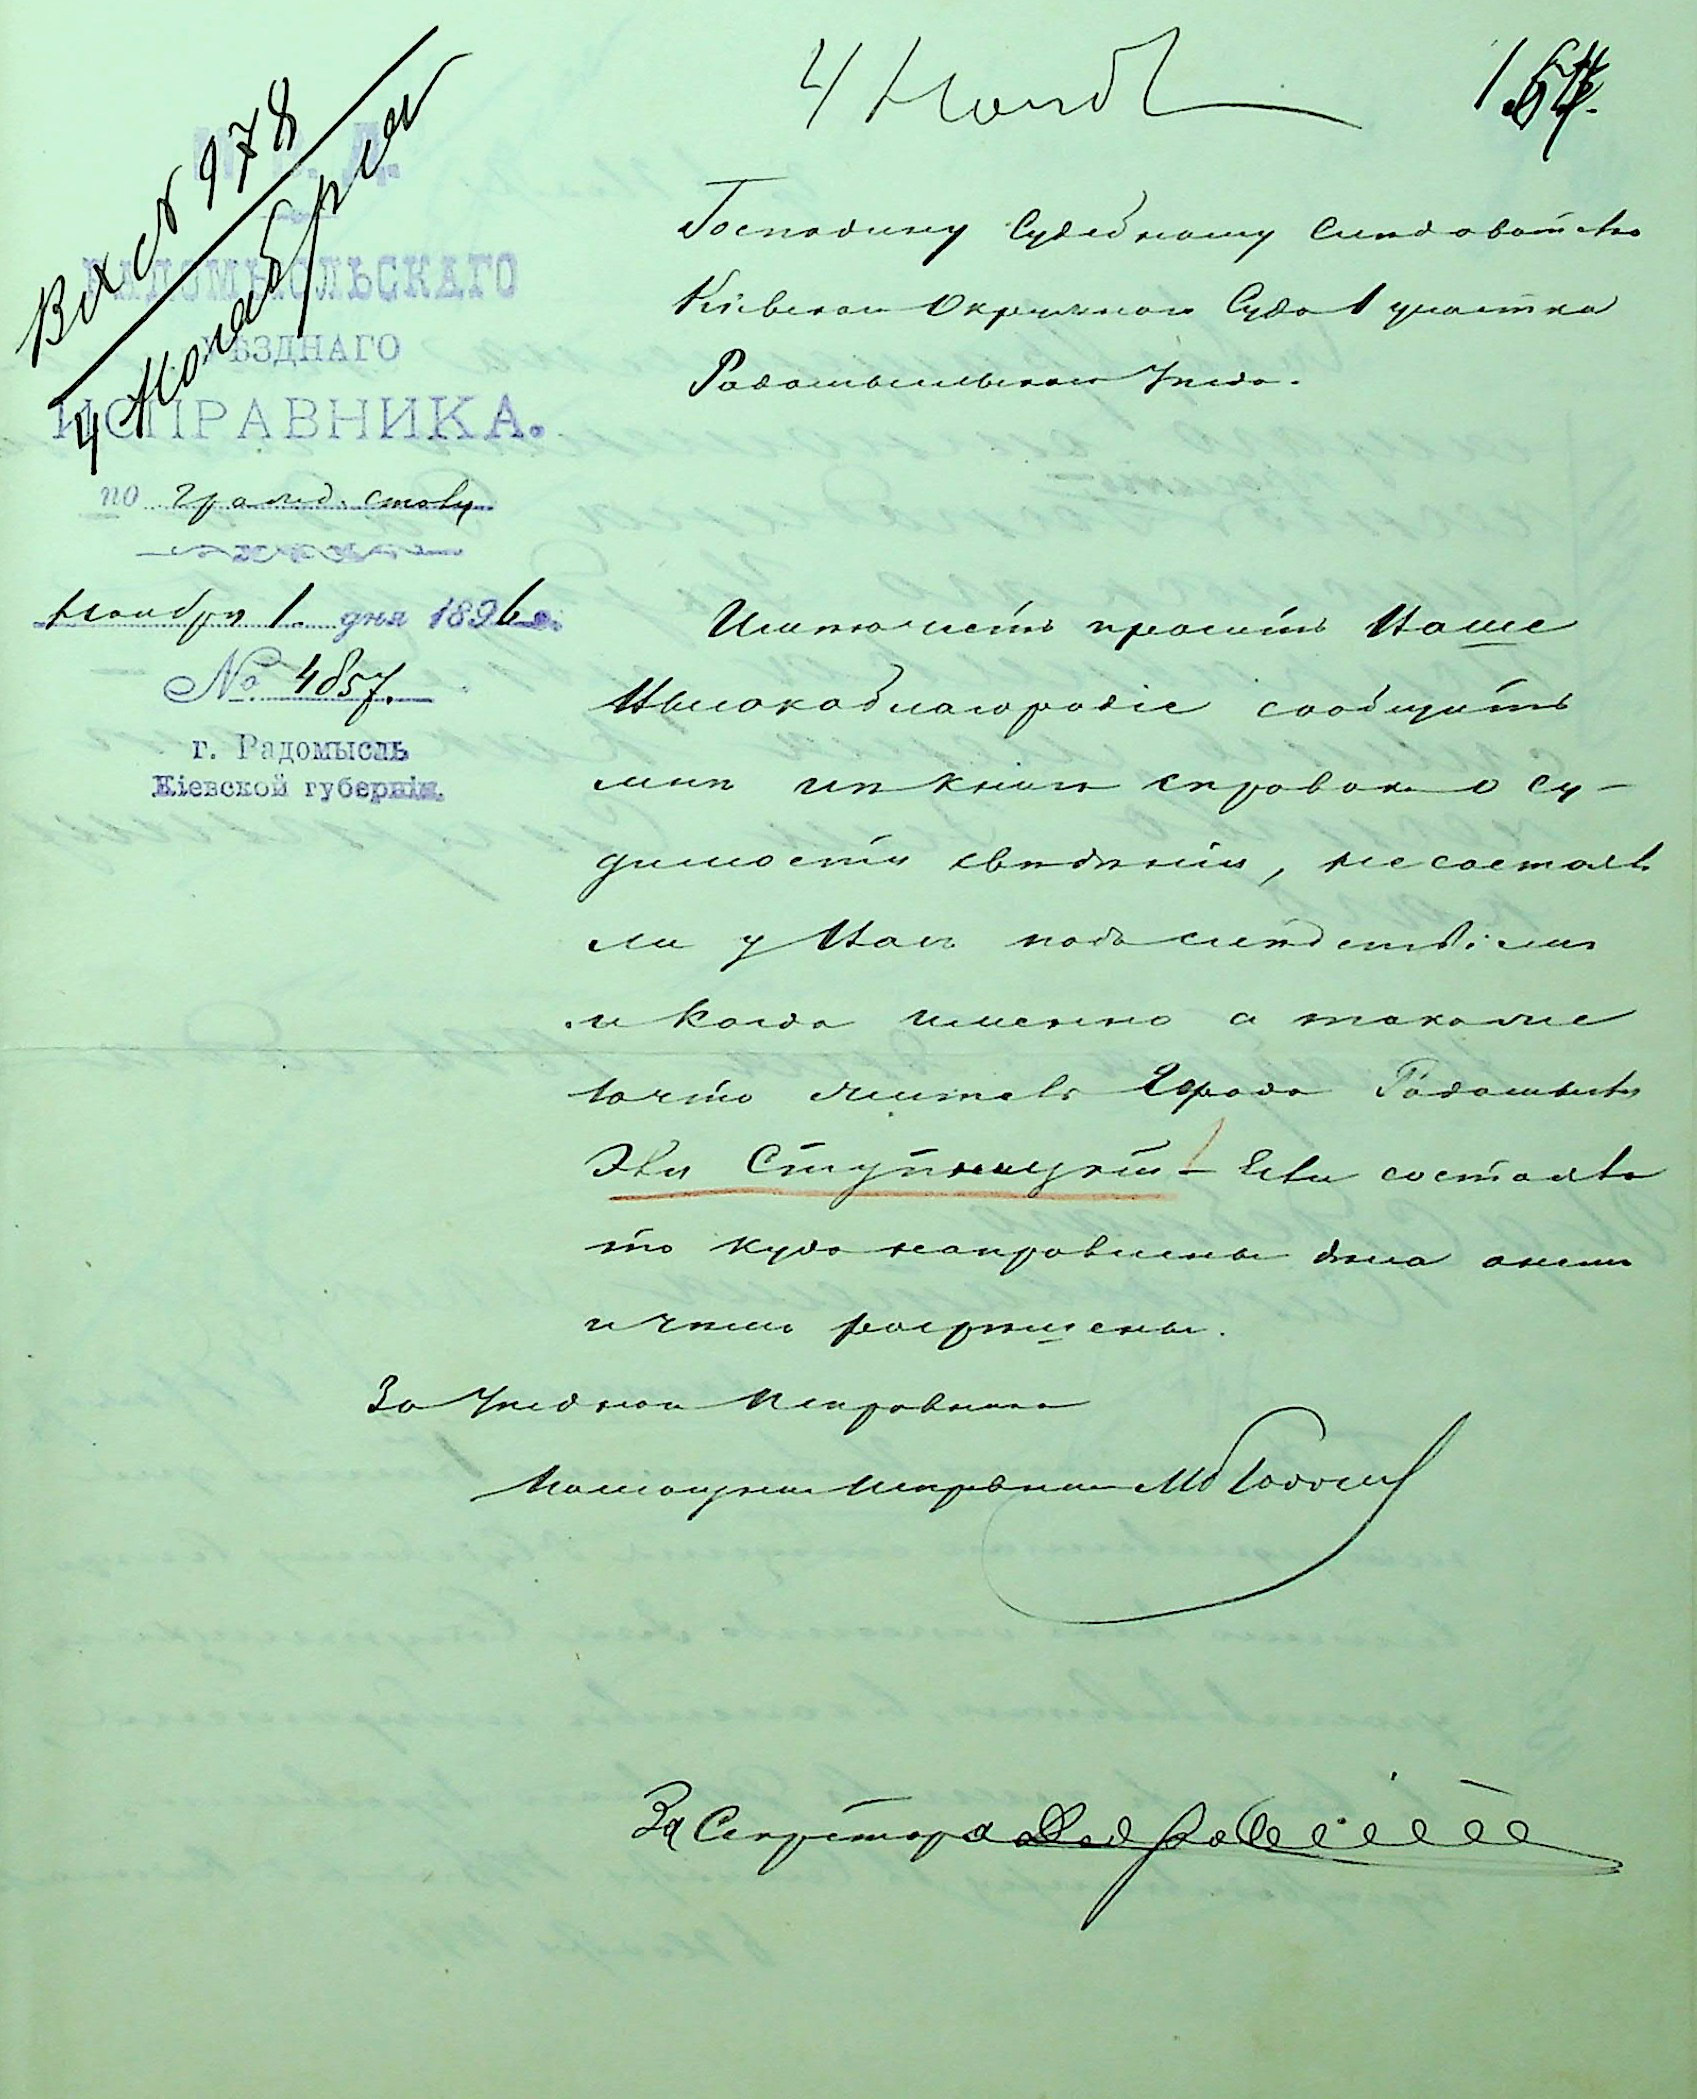 4 Нояб
Вх № 978
4 Ноября
М. В. Д.
РАДОМЫСЛЬСКАГО
УѢЗДНАГО
ИСПРАВНИКА.
по гражд. столу
Ноября 1 дня 1896 г.
№ 4857.
г. Радомысль
Кіевской губерніи.
Господину Судебному Следователю
Кіевскаго Окружнаго Суда 1 участка
Радомысльскаго Уѣзда.
Имѣю честь просить Ваше
Высокоблагородіе сообщить
мнѣ справокъ о су-
димости свѣдѣнія, не состоялъ
ли у Васъ подъ слѣдствіемъ
и когда именно а также
за что житель Города Радомысля
Эля Ступницкій – Если состоялъ
то куда направлены дѣла о немъ
и чѣмъ разрѣшены.
За Уѣзднаго Исправника
Помощникъ Исправника
За Секретаря